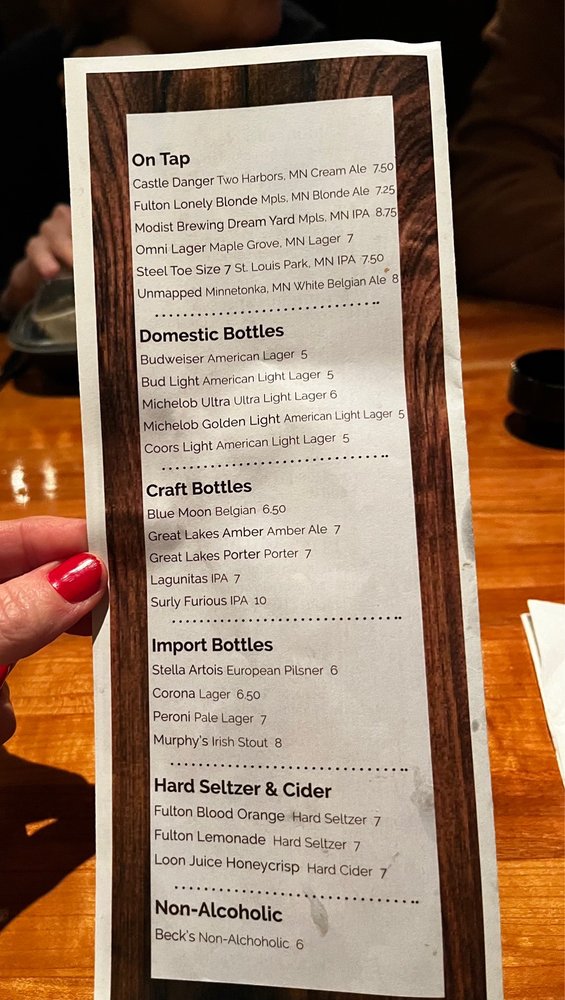 On Tap
Castle Danger Two Harbors, MN Cream Ale 7.50
Fulton Lonely Blonde Mpls, MN Blonde Ale 7.25
Modist Brewing Dream Yard Mpls, MN IPA 8.75
Omni Lager Maple Grove, MN Lager 7
Steel Toe Size 7 St. Louis Park, MN IPA 7.50
Unmapped Minnetonka, MN White Belgian Ale 8
Domestic Bottles
Budweiser American Lager 5
Bud Light American Light Lager 5
Michelob Ultra Ultra Light Lager 6
Michelob Golden Light American Light Lager 5
Coors Light American Light Lager 5
Craft Bottles
Blue Moon Belgian 6.50
Great Lakes Amber Amber Ale 7
Great Lakes Porter Porter 7
Lagunitas IPA 7
Surly Furious IPA 10
Import Bottles
Stella Artois European Pilsner 6
Corona Lager 6.50
Peroni Pale Lager 7
Murphy's Irish Stout 8
Hard Seltzer & Cider
Fulton Blood Orange Hard Seltzer 7
Fulton Lemonade Hard Seltzer 7
Loon Juice Honeycrisp Hard Cider 7
Non-Alcoholic
Beck's Non-Alchoholic 6